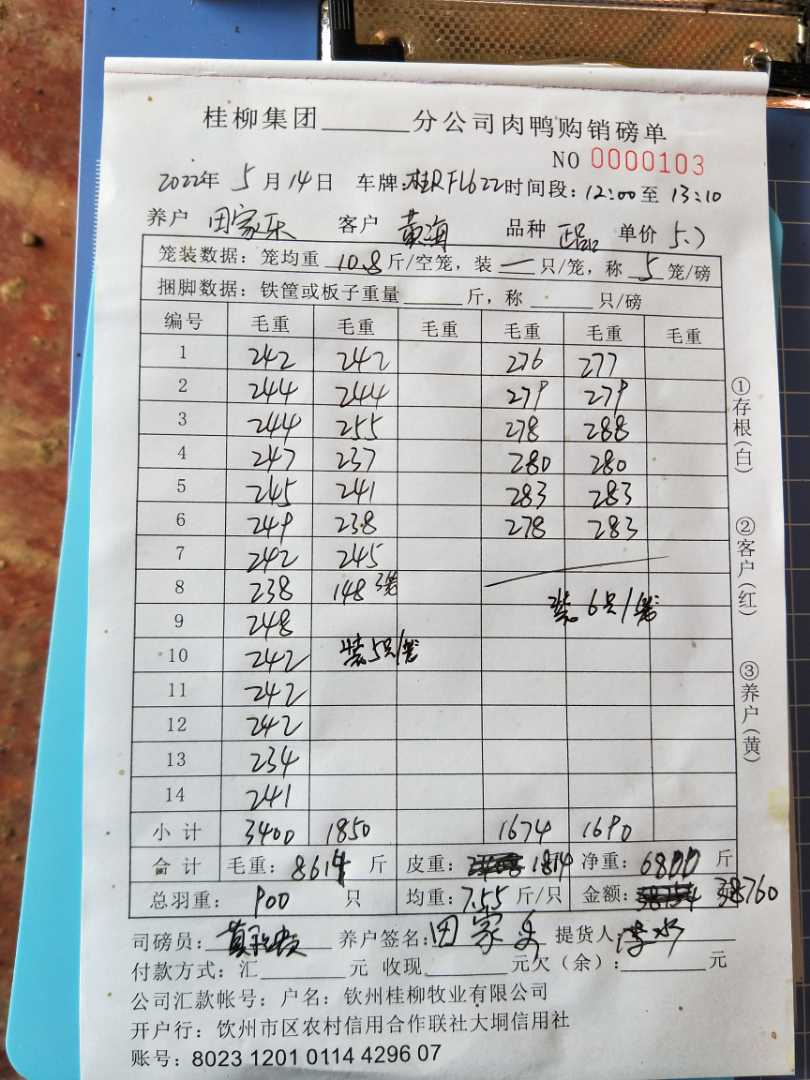 桂柳集团______分公司肉鸭购销磅单
NO 0000103
2022年 5 月 14 日 车牌:桂RFL622 时间段: 12:00 至 13:10
养户 田家乐 客户 黄海 品种 正品 单价 5.7
笼装数据: 笼均重 10.8 斤/空笼, 装 一 只/笼, 称 5 笼/磅
捆脚数据: 铁筐或板子重量______斤, 称______只/磅
编号 毛重 毛重 毛重 毛重 毛重 毛重
1 242 242 276 277
2 244 244 279 279
3 244 255 278 288
4 247 237 280 280
5 245 241 283 283
6 249 238 278 283
7 242 245
8 238 148 3笼
装6只/笼
9 248
10 242 装5只/笼
11 242
12 242
13 234
14 241
小计 3400 1850 1674 1690
合计 毛重: 8614 斤 皮重: 1814 净重: 6800 斤
总羽重: 900 只 均重: 7.55 斤/只 金额: 38760
司磅员: 养户签名: 田家乐 提货人:
付款方式: 汇______元 收现______元欠（余）:______元
公司汇款帐号: 户名: 钦州桂柳牧业有限公司
开户行: 钦州市区农村信用合作联社大垌信用社
账号: 8023 1201 0114 4296 07
①存根(白)
②客户(红)
③养户(黄)